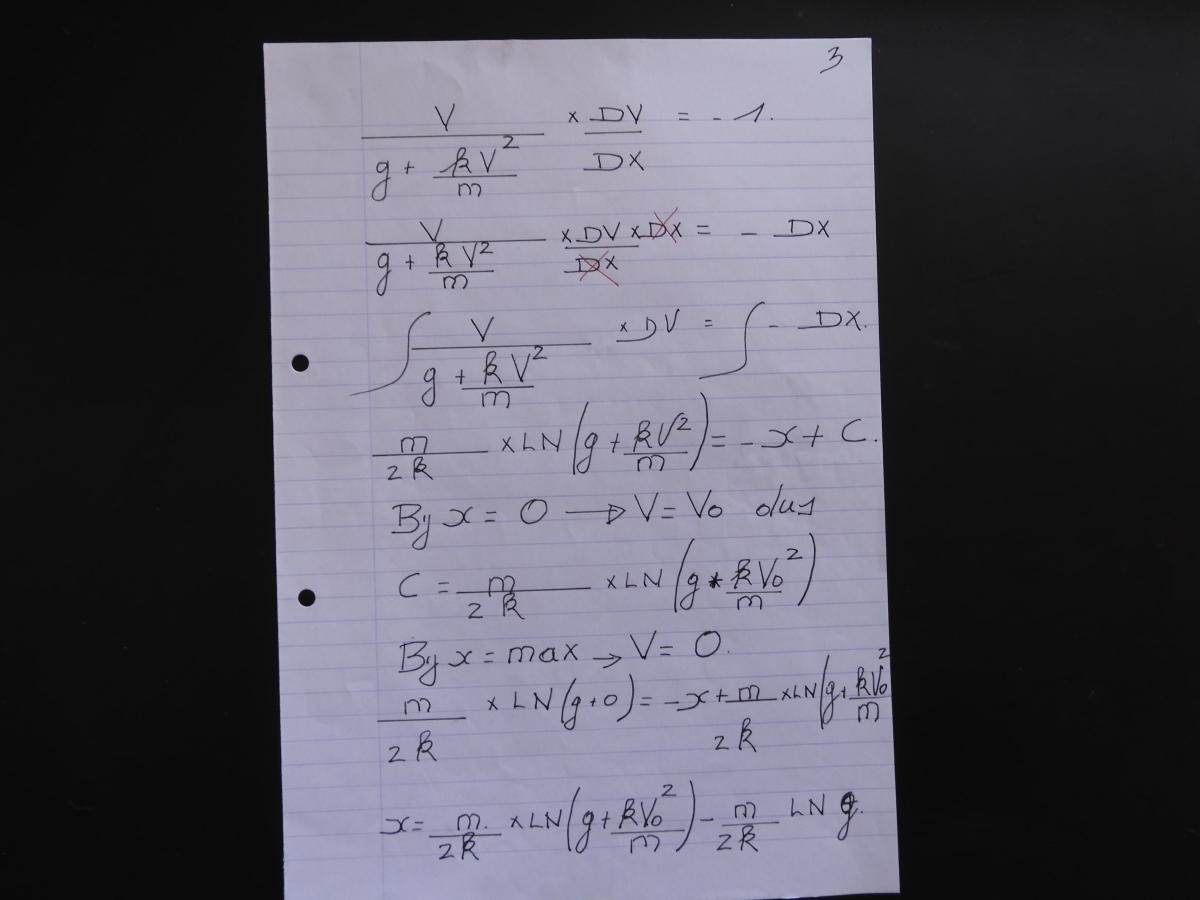 3
V / (g + kV² / m) × DV / DX = - 1.
V / (g + kV² / m) × DV × DX / DX = - DX
∫ V / (g + kV² / m) × DV = ∫ - DX.
m / 2k × LN (g + kV² / m) = - x + C.
By x = 0 → V = V₀ dus
C = m / 2k × LN (g + kV₀² / m)
By x = max → V = 0.
m / 2k × LN (g + 0) = - x + m / 2k × LN (g + kV₀² / m
x = m / 2k × LN (g + kV₀² / m) - m / 2k LN g.